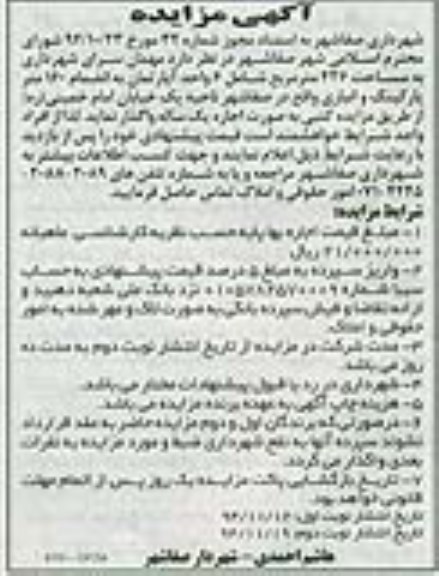 آگهی مزایده
شهرداری صفاشهر به استناد مجوز شماره ۳۲ مورخ ۹۶/۱۰/۲۳ شورای
محترم اسلامی شهر صفاشهر در نظر دارد مهمان سرای شهرداری
به مساحت ۴۳۶ مترمربع شامل ۶ واحد آپارتمان به انضمام ۱۶۰ متر
پارکینگ و انباری واقع در صفاشهر ناحیه یک خیابان امام خمینی (ره)
از طریق مزایده کتبی به صورت اجاره یک ساله واگذار نماید لذا از افراد
واجد شرایط خواهشمند است قیمت پیشنهادی خود را پس از بازدید
با رعایت شرایط ذیل اعلام نمایند و جهت کسب اطلاعات بیشتر به
شهرداری صفاشهر مراجعه و یا به شماره تلفن های
امور حقوقی و املاک تماس حاصل فرمایید.
شرایط مزایده:
۱- مبلغ قیمت اجاره بها پایه حسب نظریه کارشناسی ماهیانه
۳۱/۰۰۰/۰۰۰ ریال
۲- واریز سپرده به مبلغ ۵ درصد قیمت پیشنهادی به حساب
سیبا شماره نزد بانک ملی شعبه دهبید و
ارائه تقاضا و فیش سپرده بانکی به صورت لاک و مهر شده به امور
حقوقی و املاک.
۳- مدت شرکت در مزایده از تاریخ انتشار نوبت دوم به مدت ده
روز می باشد.
۴- شهرداری در رد یا قبول پیشنهادات مختار می باشد.
۵- هزینه چاپ آگهی به عهده برنده مزایده می باشد.
۶- در صورتی که برندگان اول و دوم مزایده حاضر به عقد قرارداد
نشوند سپرده آنها به نفع شهرداری ضبط و مورد مزایده به نفرات
بعدی واگذار می گردد.
۷- تاریخ بازگشایی پاکت مزایده یک روز پس از اتمام مهلت
قانونی خواهد بود.
تاریخ انتشار نوبت اول: ۹۶/۱۱/۱۲
تاریخ انتشار نوبت دوم: ۹۶/۱۱/۱۹
هاشم احمدی - شهردار صفاشهر